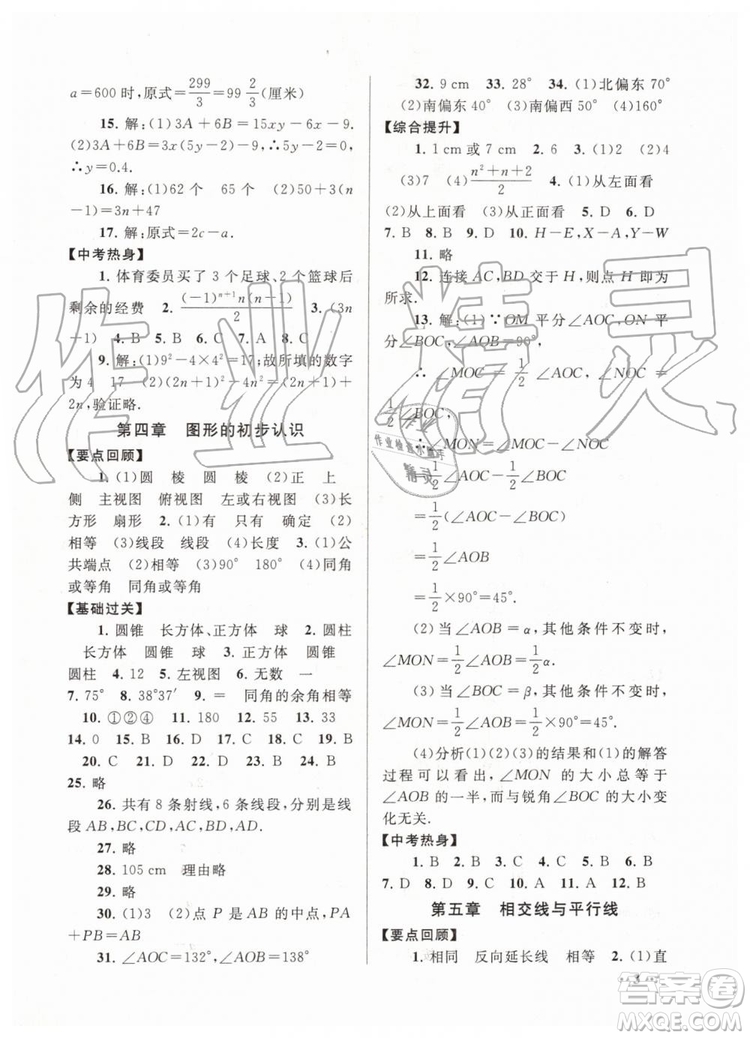 a=600 时,原式=299/3=99 2/3(厘米)
15. 解:(1)3A+6B=15xy-6x-9.
(2)3A+6B=(15y-6)x-9,15y-6=0,
所以 y=0.4.
16. 解:(1)62 个 65 个 (2)50+3(n
-1)=3n+47
17. 解:原式=2c-a.
【中考热身】
1. 体育委员买了 3 个足球、2 个篮球后
剩余的经费 2. (-1)ⁿ⁺¹(n+1)/2 3. (3n
+1) 4. B 5. B 6. B 7. A 8. C
9. 解:(1)9²-4×4²=17;故所填的数字
为 4 17 (2)(2n+1)²-4n²=(2n+1)+
2n,验证略.
第四章 图形的初步认识
【要点回顾】
1. (1)圆 棱 圆 棱 (2)正 上
侧 主视图 俯视图 左或右视图 (3)长
方形 扇形 2. (1)有 只有 确定 (2)
相等 (3)线段 线段 (4)长度 3. (1)公
共端点 (2)相等 (3)90° 180° (4)同角
或等角 同角或等角
【基础过关】
1. 圆锥 长方体、正方体 球 2. 圆柱
长方体 圆锥 球 3. 正方体 圆锥
圆柱 4. 12 5. 左视图 6. 无数 一
7. 75° 8. 38°37′ 9. = 同角的余角相等
10. ①②④ 11. 180 12. 55 13. 33
14. 0 15. B 16. D 17. C 18. C 19. B
20. C 21. D 22. B 23. B 24. B
25. 略
26. 共有 8 条射线,6 条线段,分别是线
段 AB,BC,AC,AD,BD,CD.
27. 略
28. 105 cm 理由略
29. 略
30. (1)略 (2)点 P 是 AB 的中点,PA
+PB=AB
31. ∠AOC=132°,∠AOB=138°
32. 9 cm 33. 28° 34. (1)北偏东 70°
(2)南偏东 40° (3)南偏西 50° (4)160°
【综合提升】
1. 1 cm 或 7 cm 2. 6 3. (1)2 (2)4
(3)7 (4) n²+n+2/2 4. (1)从左面看
(2)从上面看 (3)从正面看 5. D 6. D
7. B 8. A 9. D 10. H-E,X-A,Y-W.
11. 略
12. 连接 AC,BD 交于 H,则点 H 即为
所求.
13. 解:(1)∵OM 平分∠AOC,ON 平
分∠BOC,∠AOB=90°,
∴ ∠MOC=1/2∠AOC,∠NOC=
1/2∠BOC.
∴ ∠MON=∠MOC-∠NOC
=1/2∠AOC-1/2∠BOC
=1/2(∠AOC-∠BOC)
=1/2∠AOB
=1/2×90°=45°.
(2)当∠AOB=α,其他条件不变时,
∠MON=1/2∠AOB=1/2α.
(3)当∠BOC=β,其他条件不变时,
∠MON=1/2∠AOB=1/2×90°=45°.
(4)分析(1)(2)(3)的结果和(1)的解答
过程可以看出,∠MON 的大小总等于
∠AOB 的一半,而与锐角∠BOC 的大小变
化无关.
【中考热身】
1. B 2. B 3. C 4. C 5. A 6. B
7. D 8. D 9. C 10. A 11. B
第五章 相交线与平行线
【要点回顾】
1. 相同 反向延长线 相等 2. (1)直
3
作业精灵
作业检查小助手
精灵
答案圈